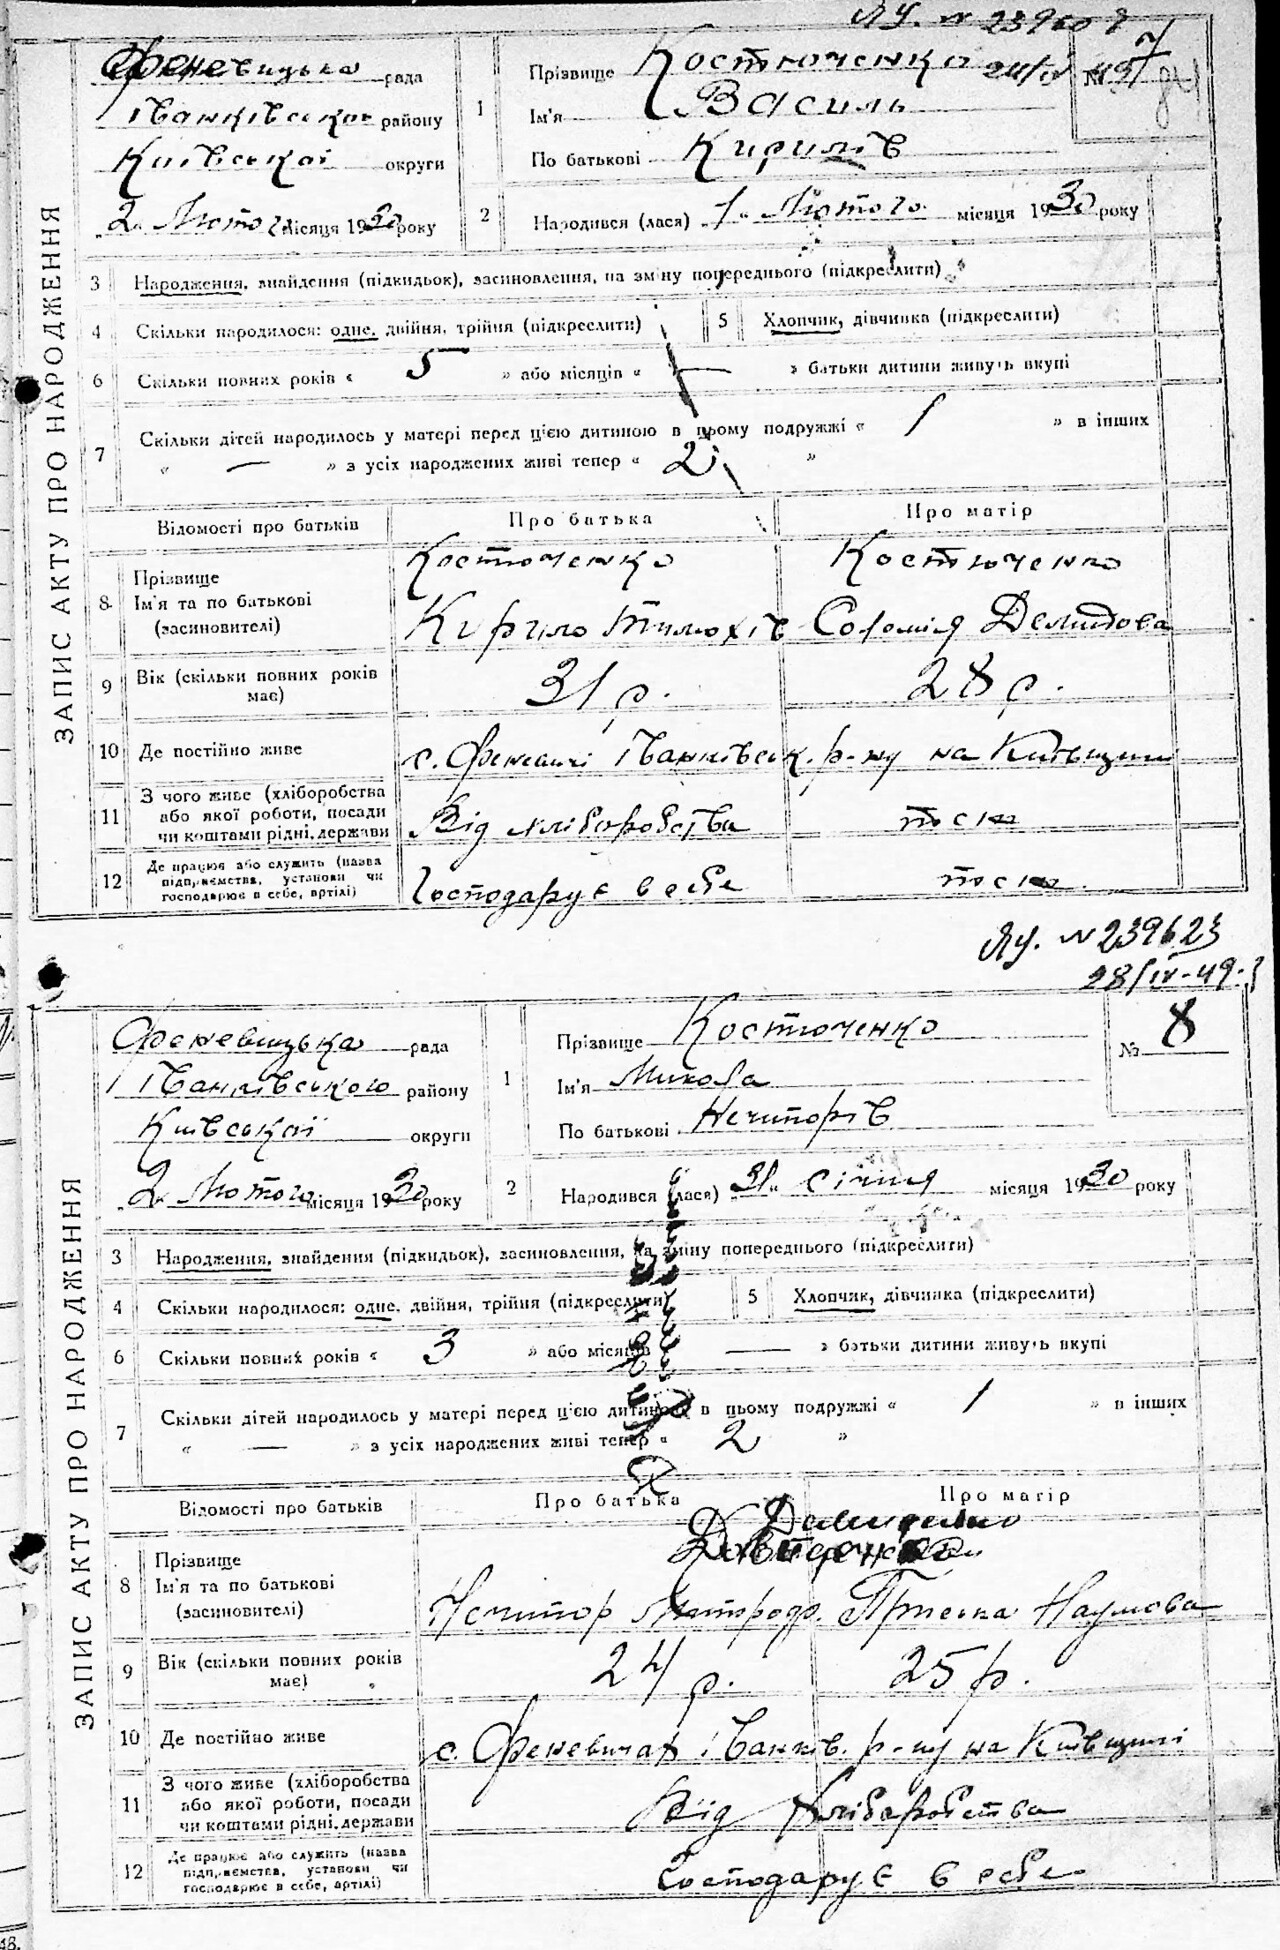 ЯУ. № 239607
24/IV 49
ЗАПИС АКТУ ПРО НАРОДЖЕННЯ
Феневицька рада
Іванківського району
Київської округи
„2“ Лютого місяця 1930 року
1 Прізвище Костюченко
Ім'я Василь
По батькові Кирилів
№ 7
2 Народився (лася) „1“ Лютого місяця 1930 року
3 Народження, знайдення (підкидьок), засиновлення, на зміну попереднього (підкреслити)
4 Скільки народилося: одне, двійня, трійня (підкреслити) 5 Хлопчик, дівчинка (підкреслити)
6 Скільки повних років « 5 » або місяців « — » батьки дитини живуть вкупі
7 Скільки дітей народилось у матері перед цією дитиною в цьому подружжі « 1 » в інших
« — » з усіх народжених живі тепер « 2 »
Відомості про батьків Про батька Про матір
8 Прізвище Ім'я та по батькові (засиновителі) Костюченко Кирило Тимохів Костюченко Соломія Демидова
9 Вік (скільки повних років має) 31 р. 28 р.
10 Де постійно живе с. Феневичі Іванківськ. р-ну на Київщині
11 З чого живе (хліборобства або якої роботи, посади чи коштами рідні, держави Від хліборобства тосж
12 Де працює або служить (назва підприємства, установи чи господарює в себе, артілі) Господарує в себе тосж
ЯУ. № 239623
28/IV-49
ЗАПИС АКТУ ПРО НАРОДЖЕННЯ
Феневицька рада
Іванківського району
Київської округи
„2“ Лютого місяця 1930 року
1 Прізвище Костюченко
Ім'я Микола
По батькові Нечипорів
№ 8
2 Народився (лася) „31“ січня місяця 1930 року
3 Народження, знайдення (підкидьок), засиновлення, на зміну попереднього (підкреслити)
4 Скільки народилося: одне, двійня, трійня (підкреслити) 5 Хлопчик, дівчинка (підкреслити)
6 Скільки повних років « 3 » або місяців — » батьки дитини живуть вкупі
7 Скільки дітей народилось у матері перед цією дитиною в цьому подружжі « 1 » в інших
« — » з усіх народжених живі тепер « 2 »
Відомості про батьків Про батька Про матір
8 Прізвище Ім'я та по батькові (засиновителі) Нечипор Приська Наумова
9 Вік (скільки повних років має) 24 р. 25 р.
10 Де постійно живе с. Феневичах Іванків. р-ну на Київщині
11 З чого живе (хліборобства або якої роботи, посади чи коштами рідні, держави Від хліборобства
12 Де працює або служить (назва підприємства, установи чи господарює в себе, артілі) Господарує в себе
48.